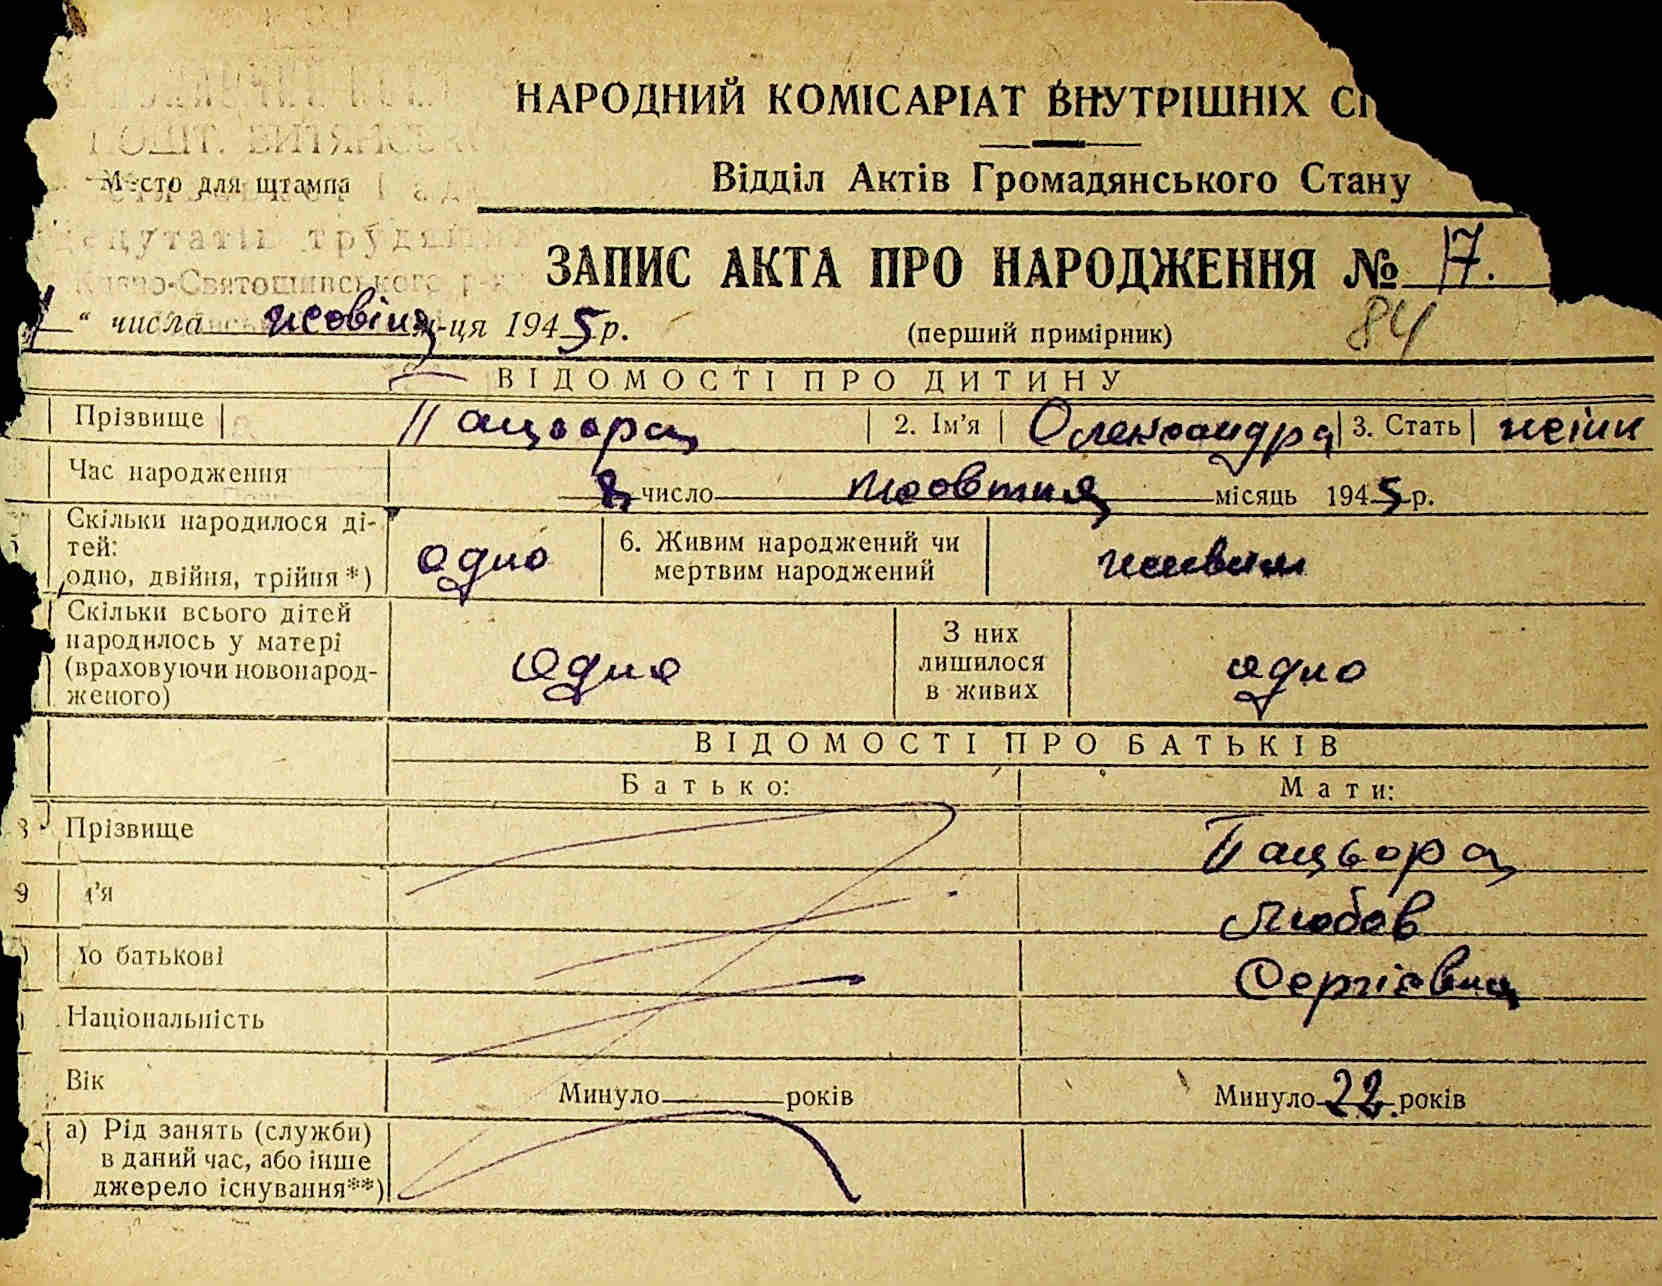 НАРОДНИЙ КОМІСАРІАТ ВНУТРІШНІХ
ПОШТ. ВИТЯНСЬ
Место для штампа
Відділ Актів Громадянського Стану
депутатів трудящ
Києво-Святошинського р-н
ЗАПИС АКТА ПРО НАРОДЖЕННЯ № 17.
" числа жовтня м-ця 1945 р.
(перший примірник)
84
ВІДОМОСТІ ПРО ДИТИНУ
Прізвище Пацьора 2. Ім'я Олександра 3. Стать жіни
Час народження 8 число жовтня місяць 1945 р.
Скільки народилося ді-
тей:
одно, двійня, трійня*) одно 6. Живим народжений чи
мертвим народжений живим
Скільки всього дітей
народилось у матері
(враховуючи новонарод-
женого) одно З них
лишилося
в живих одно
ВІДОМОСТІ ПРО БАТЬКІВ
Батько: Мати:
8 Прізвище Пацьора
9 м'я Любов
По батькові Сергієвна
Національність
Вік Минуло років Минуло 22 років
а) Рід занять (служби)
в даний час, або інше
джерело існування**)